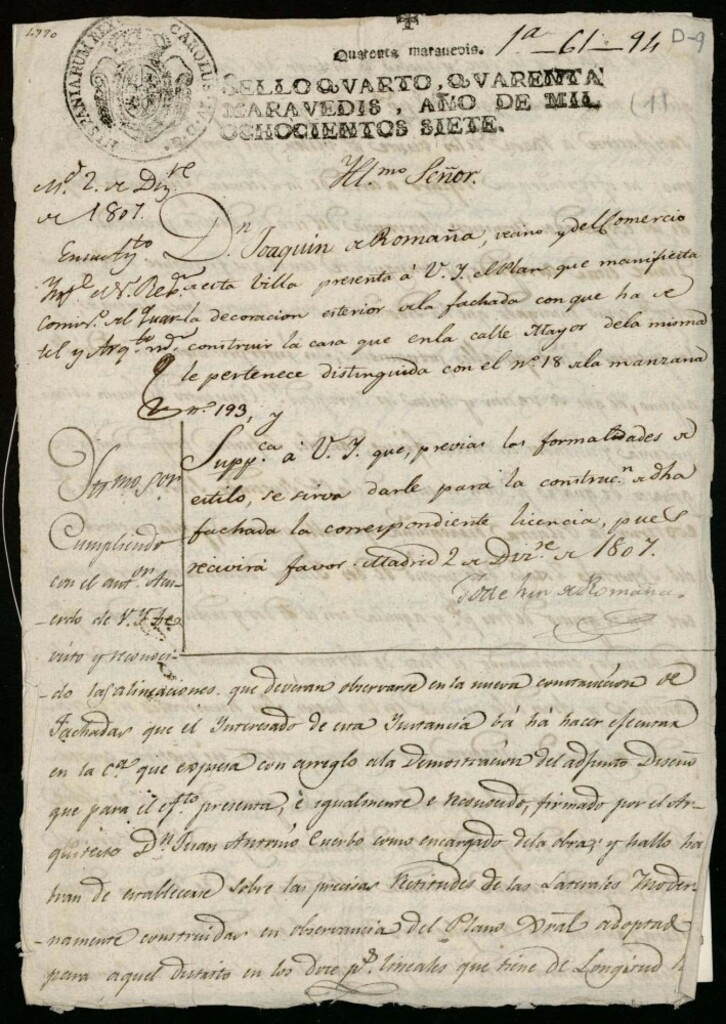 4770
HISPANIARUM REX CAROLUS IV D G
Quarenta maravedis.
1ª-61-94
D-9
SELLO QVARTO, QVARENTA
MARAVEDIS, AÑO DE MIL
OCHOCIENTOS SIETE.
Yll.mo Señor.
M.d 2. de Diz.re
de 1807.
En su Ay.to
Ynf.e el S.r Reg.r
Comis.o del Quar-
tel y Arq.to m.or
D.n Joaquin de Romaña, vecino y del Comercio
de esta Villa presenta á V. I. el Plan que manifiesta
la decoracion esterior de la fachada con que ha de
construir la casa que en la calle Mayor de la misma
le pertenece distinguida con el n.º 18 de la manzana
n.º 193, y
Supp.ca á V. I. que, previas las formalidades de
estilo, se sirva darle para la construc.n de dha
fachada la correspondiente licencia, pues
recivirá favor. Madrid 2 de Diz.re de 1807.
Joachin de Romaña
Yltmo. Sor
Cumpliendo
con el ant.or Acu-
erdo de V. Y. he
visto y reconoci-
-do las alineaciones que deveran observarse en la nueva construccion de
Fachadas que el Interesado de esta Ynstancia bá há hacer ejecutar
en la C.e que expresa con arreglo á la Demostracion del adjunto Diseño
que para el ef.to presenta, è igualmente e reconocido, firmado por el Ar-
quitecto D.n Juan Antonio Cuerbo como encargado de la obra; y hallo ha
bran de establecerse sobre las precisas Rectitudes de las Laterales moder-
-namente construidas en observancia del Plano Gral adoptad
para aquel distrito en los doze p.s lineales que tiene de Longitud